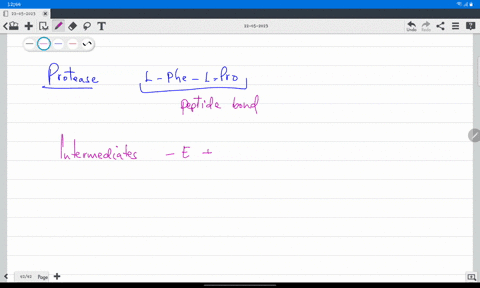 12:00
22-05-2023
22-05-2023
Protease L - Phe - L - Pro
peptide bond
Intermediates - E +
43/93 Page